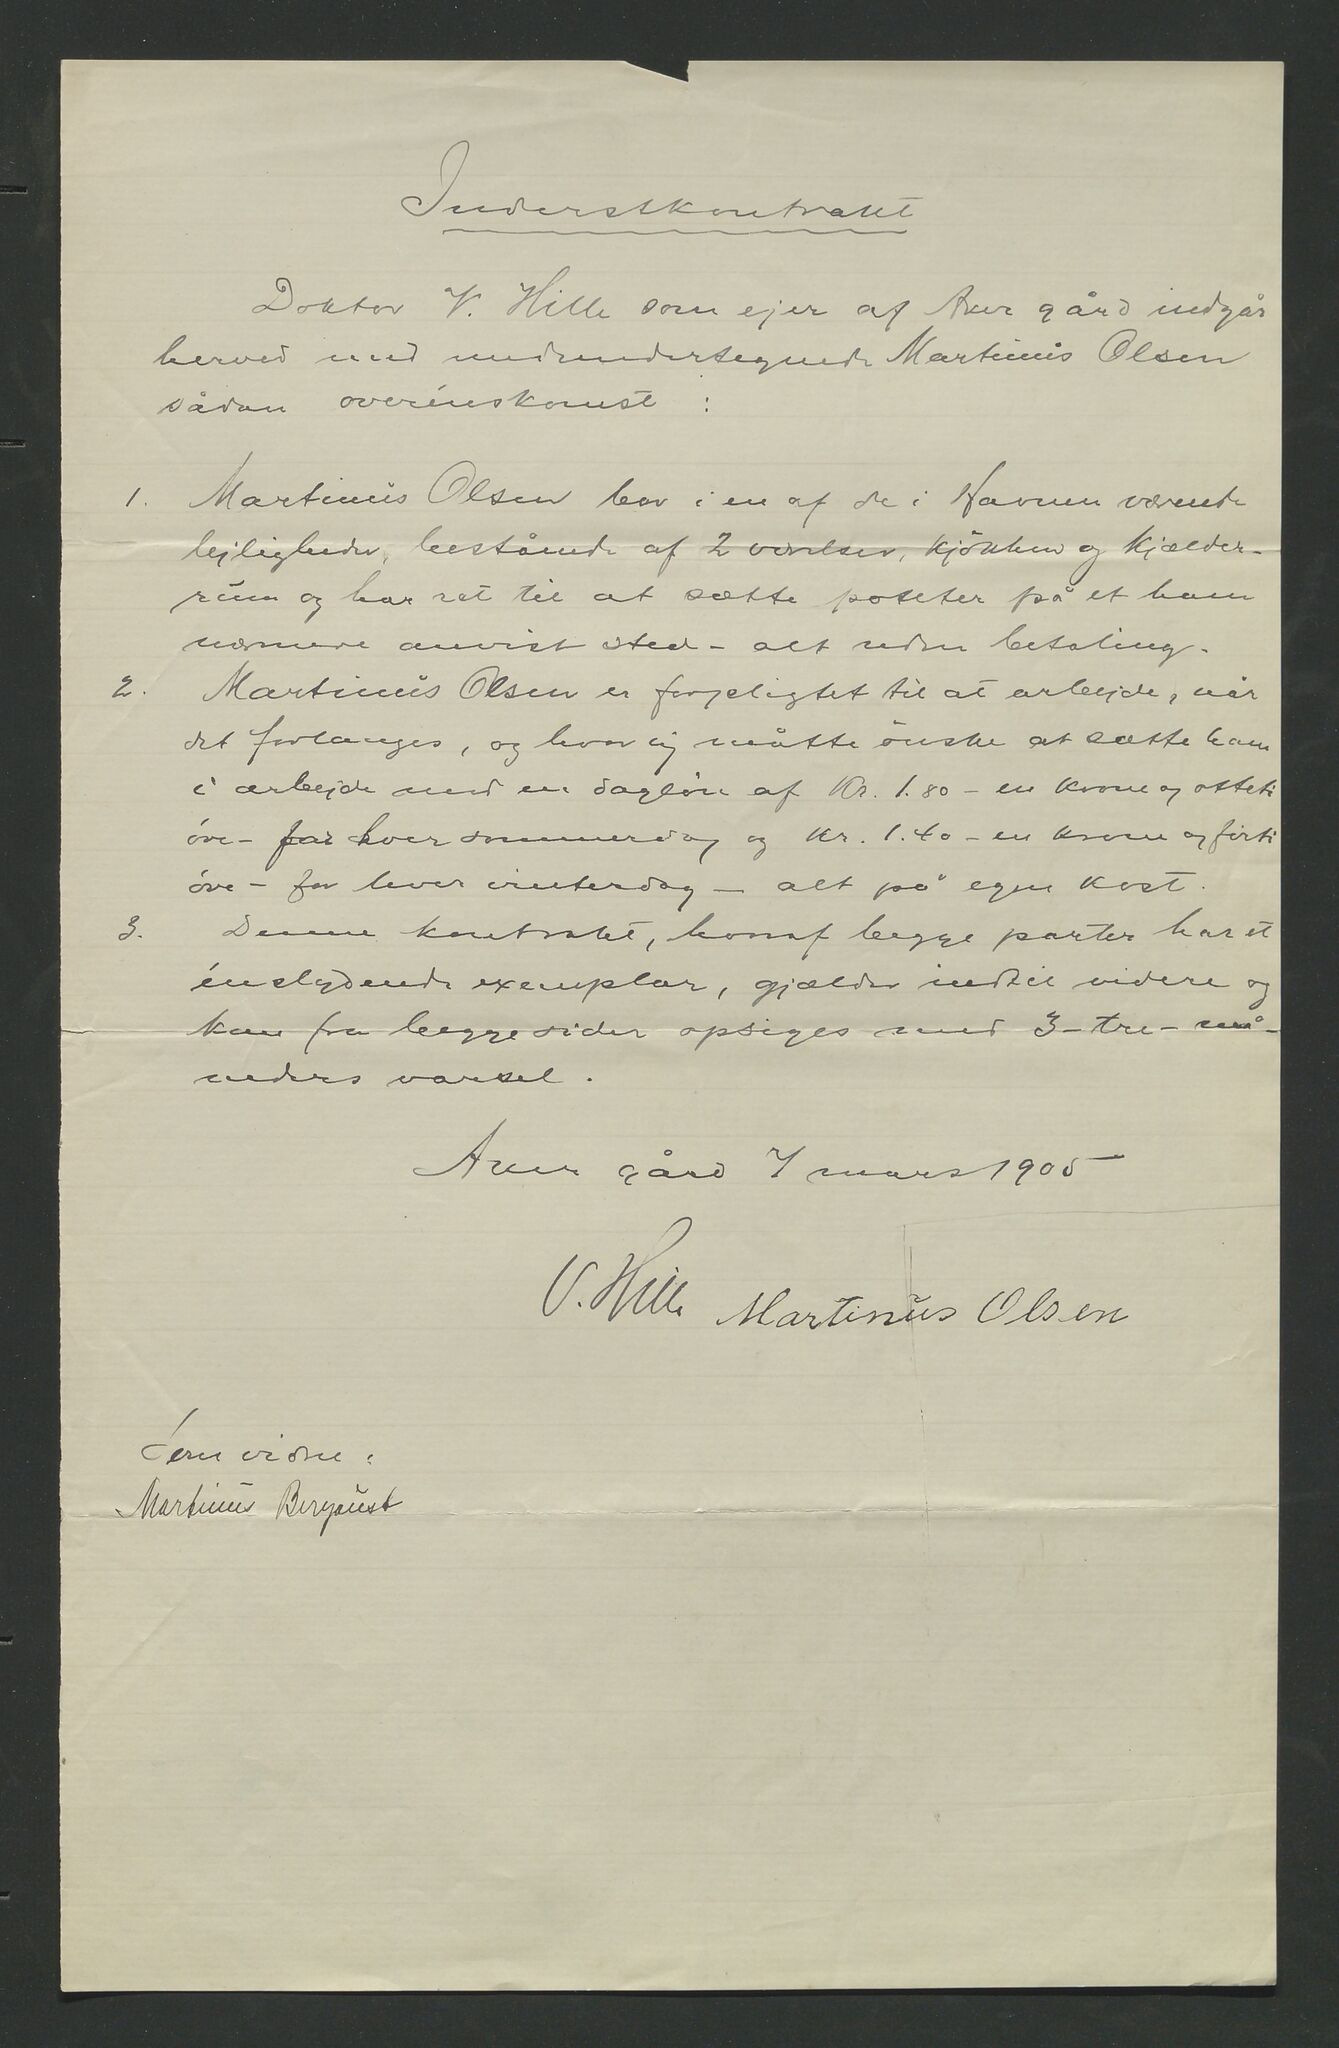 Inderstkontrakt
Doktor V. Hille som ejer af Aker gård indgår
herved med medundertegnede Martinus Olsen
sådan overénskomst :
1. Martinus Olsen bor i en af de i Havnen værende
lejligheder, bestående af 2 værelser, kjökken og kjælder-
rum og har ret til at sætte poteter på et ham
nærmere anvist sted - alt uden betaling.
2. Martinus Olsen er forpligtet til at arbejde, når
det forlanges, og hvor jeg måtte önske at sætte ham
i arbejde med en daglön af Kr. 1.80 - en krone og otteti
öre - for hver sommerdag og Kr. 1.40 - en krone og förti
öre - for hver vinterdag - alt på egen kost.
3. Denne kontrakt, hvoraf begge parter har et
énslydende exemplar, gjælder indtil videre og
kan fra begge sider opsiges med 3 - tre - må-
neders varsel.
Aker gård 7 mars 1905
V. Hille Martinus Olsen
Som vidne :
Martinus Bergquist